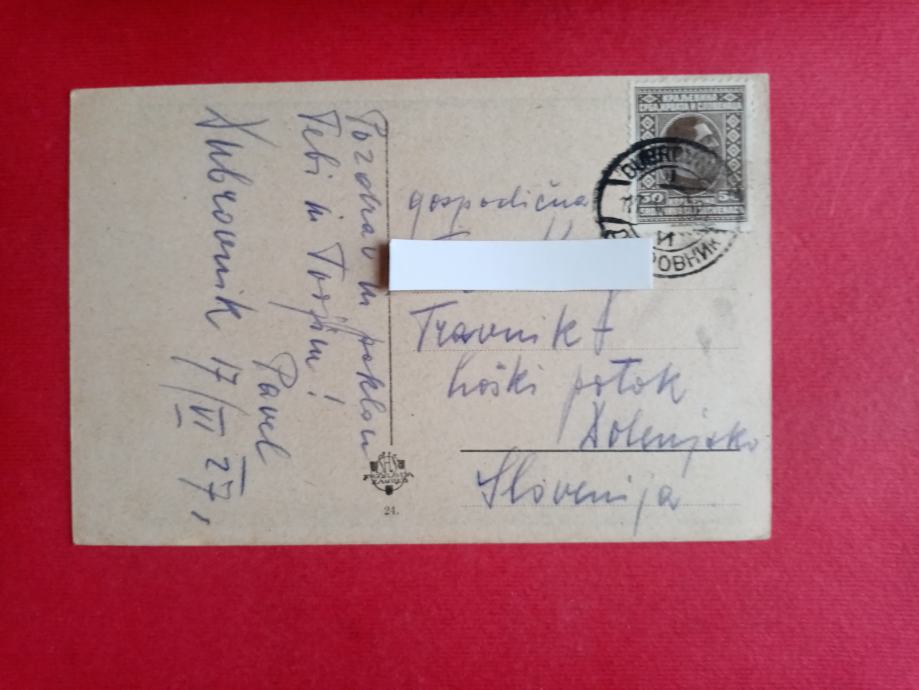 Pozdrav in poklon
Tebi in Tvojim!
Pavel
Dubrovnik 17/VI 27,
КРАЉЕВИНА
СРБА, ХРВАТА И СЛОВЕНАЦА
50
DUBROVNIK
gospodična
Travnik
Loški potok
Dolenjsko
Slovenija
SHS
24.